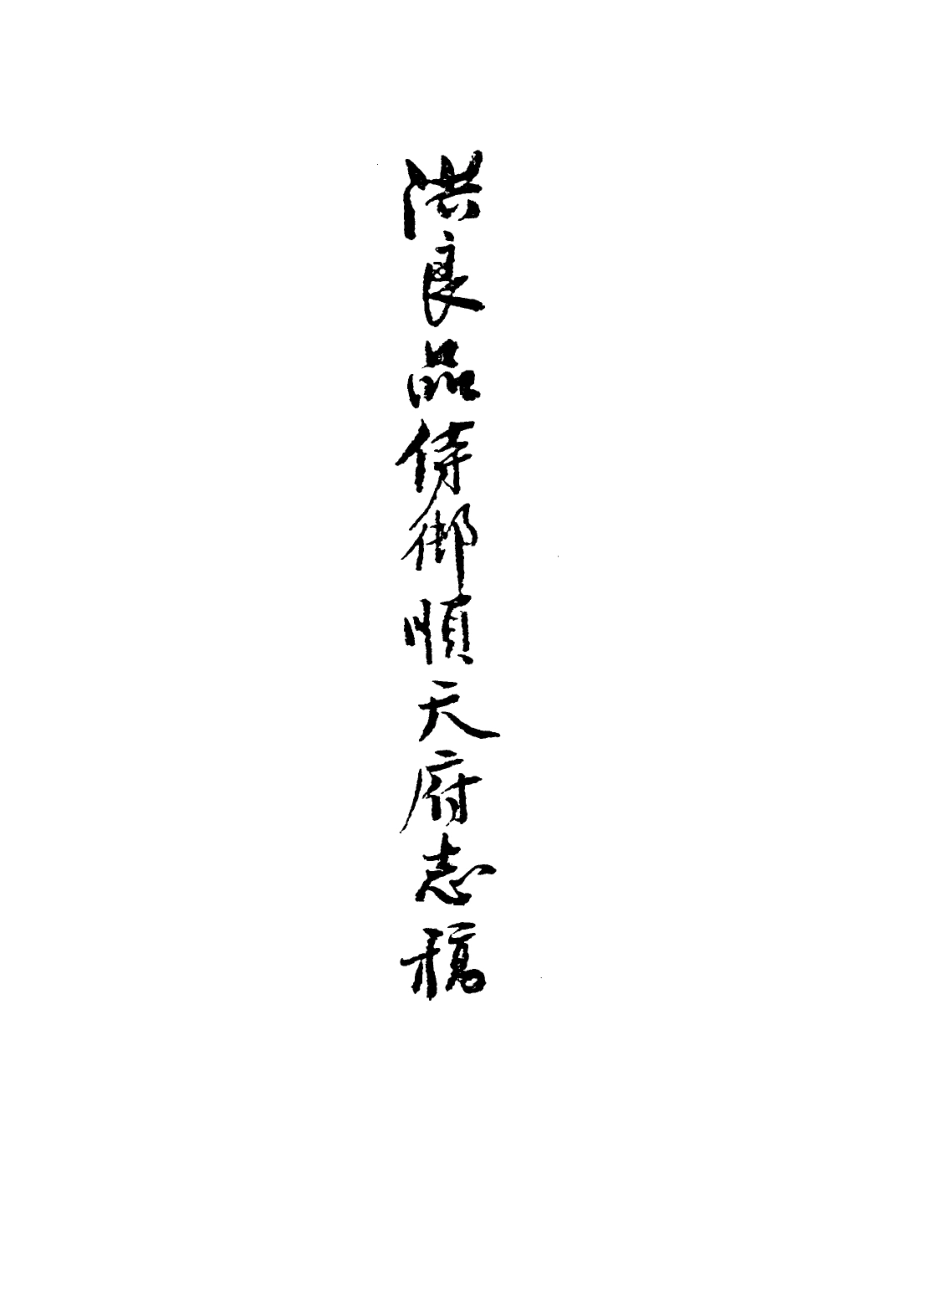 洪良品侍御順天府志稿